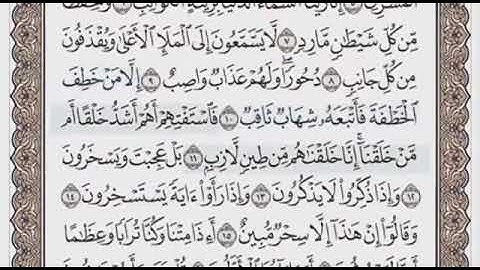 إِنَّا زَيَّنَّا ٱلسَّمَآءَ ٱلدُّنْيَا بِزِينَةٍ ٱلْكَوَاكِبِ ۝٦ وَحِفْظًا
مِّن كُلِّ شَيْطَٰنٍ مَّارِدٍ ۝٧ لَّا يَسَّمَّعُونَ إِلَى ٱلْمَلَإِ ٱلْأَعْلَىٰ وَيُقْذَفُونَ
مِن كُلِّ جَانِبٍ ۝٨ دُحُورًا ۖ وَلَهُمْ عَذَابٌ وَاصِبٌ ۝٩ إِلَّا مَنْ خَطِفَ
ٱلْخَطْفَةَ فَأَتْبَعَهُۥ شِهَابٌ ثَاقِبٌ ۝١٠ فَٱسْتَفْتِهِمْ أَهُمْ أَشَدُّ خَلْقًا أَم
مَّنْ خَلَقْنَآ ۚ إِنَّا خَلَقْنَٰهُم مِّن طِينٍ لَّازِبٍۭ ۝١١ بَلْ عَجِبْتَ وَيَسْخَرُونَ
۝١٢ وَإِذَا ذُكِّرُوا۟ لَا يَذْكُرُونَ ۝١٣ وَإِذَا رَأَوْا۟ ءَايَةً يَسْتَسْخِرُونَ ۝١٤
وَقَالُوٓا۟ إِنْ هَٰذَآ إِلَّا سِحْرٌ مُّبِينٌ ۝١٥ أَءِذَا مِتْنَا وَكُنَّا تُرَابًا وَعِظَٰمًا